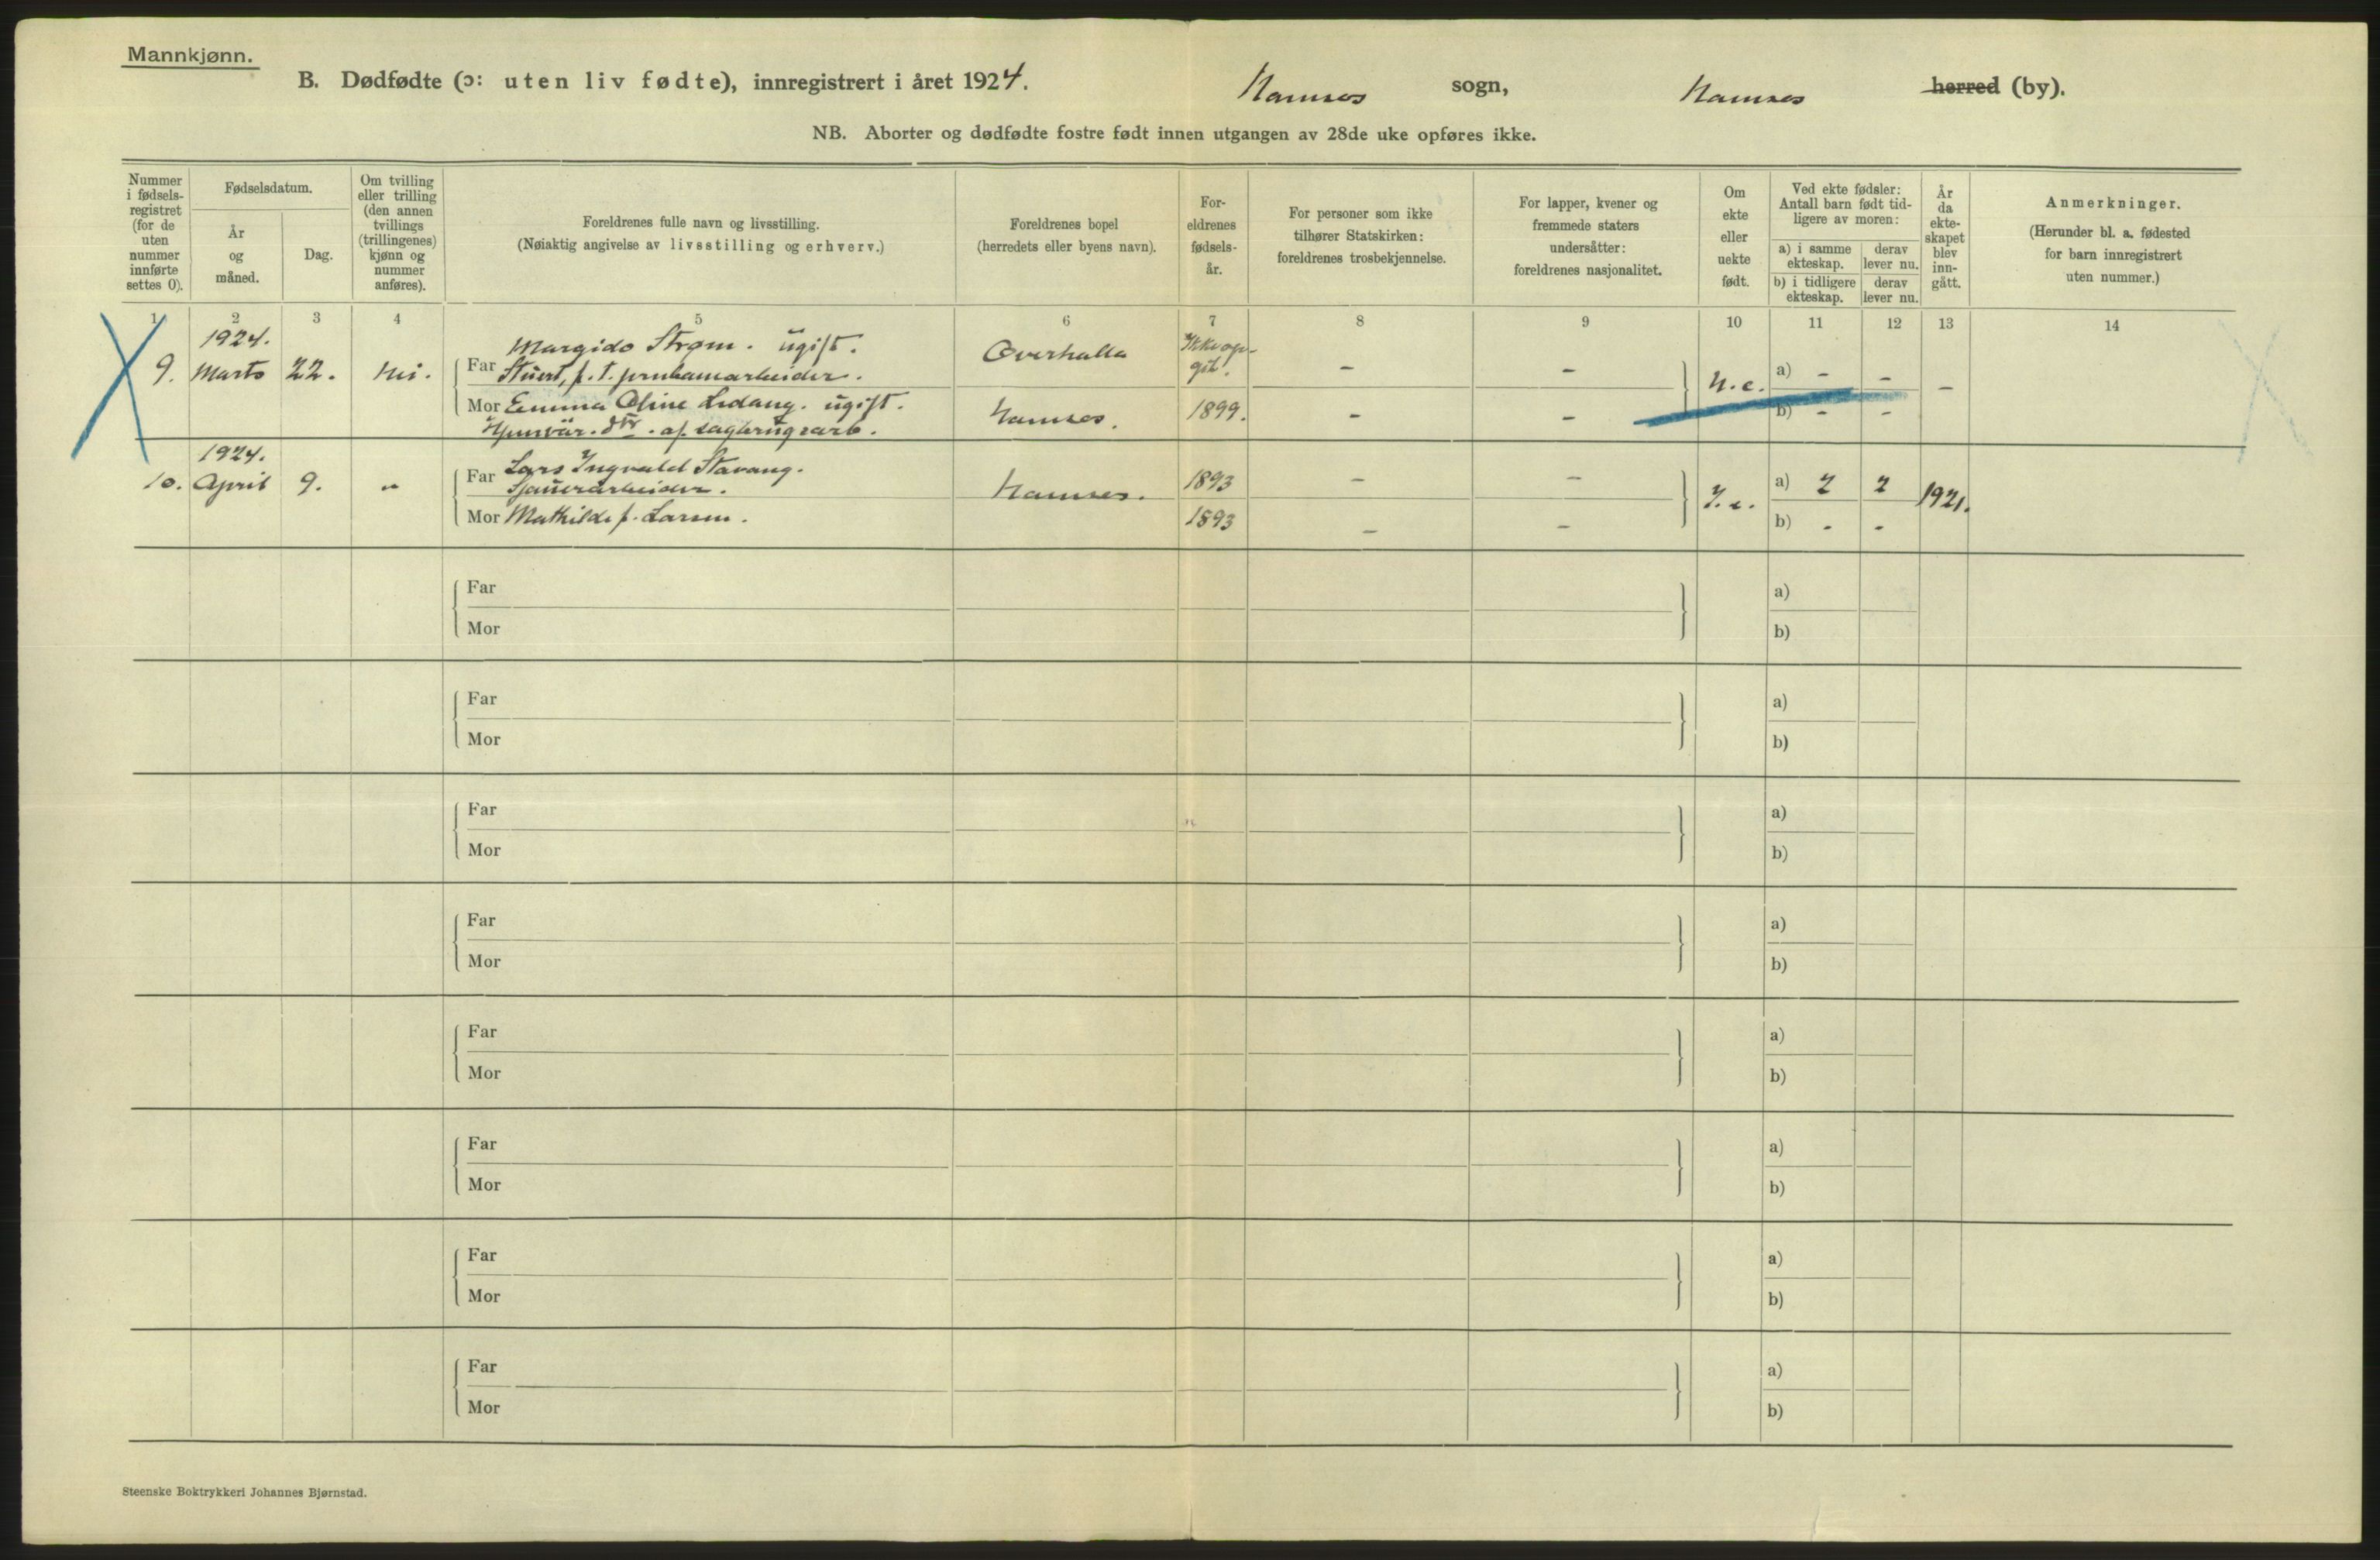 Mannkjønn.
B. Dødfødte (ɔ: uten liv fødte), innregistrert i året 1924. Namsos sogn, Namsos herred (by).
NB. Aborter og dødfødte fostre født innen utgangen av 28de uke opføres ikke.
Nummer i fødsels-registret (for de uten nummer innførte settes 0).
Fødselsdatum.
År og måned.
Dag.
Om tvilling eller trilling (den annen tvillings (trillingenes) kjønn og nummer anføres).
Foreldrenes fulle navn og livsstilling.
(Nøiaktig angivelse av livsstilling og erhverv.)
Foreldrenes bopel
(herredets eller byens navn).
For-eldrenes fødsels-år.
For personer som ikke tilhører Statskirken: foreldrenes trosbekjennelse.
For lapper, kvener og fremmede staters undersåtter: foreldrenes nasjonalitet.
Om ekte eller uekte født.
Ved ekte fødsler: Antall barn født tid-ligere av moren:
a) i samme ekteskap.
derav lever nu.
b) i tidligere ekteskap.
derav lever nu.
År da ekte-skapet blev inn-gått.
Anmerkninger.
(Herunder bl. a. fødested for barn innregistrert uten nummer.)
1 2 3 4 5 6 7 8 9 10 11 12 13 14
1924.
Margido Strøm. ugift.
9. Marts 22. Nei. Far Stuert, f. t. Overhalla Ikke op-git. – – U. e. a) – – –
Mor Emma Oline Ledang. ugift. Namsos. 1899. – – b) – –
af sagbrugsarb.
1924.
10. April 9. „ Far Lars Ingvald Stavang. 1893 – – a) 2 2 1921.
Sjauerarbeider. Namsos. e.
Mor Mathilde f. Larsen. 1893 – – b) - -
Far a)
Mor b)
Far a)
Mor b)
Far a)
Mor b)
Far a)
Mor b)
Far a)
Mor b)
Far a)
Mor b)
Far a)
Mor b)
Far a)
Mor b)
Steenske Boktrykkeri Johannes Bjørnstad.